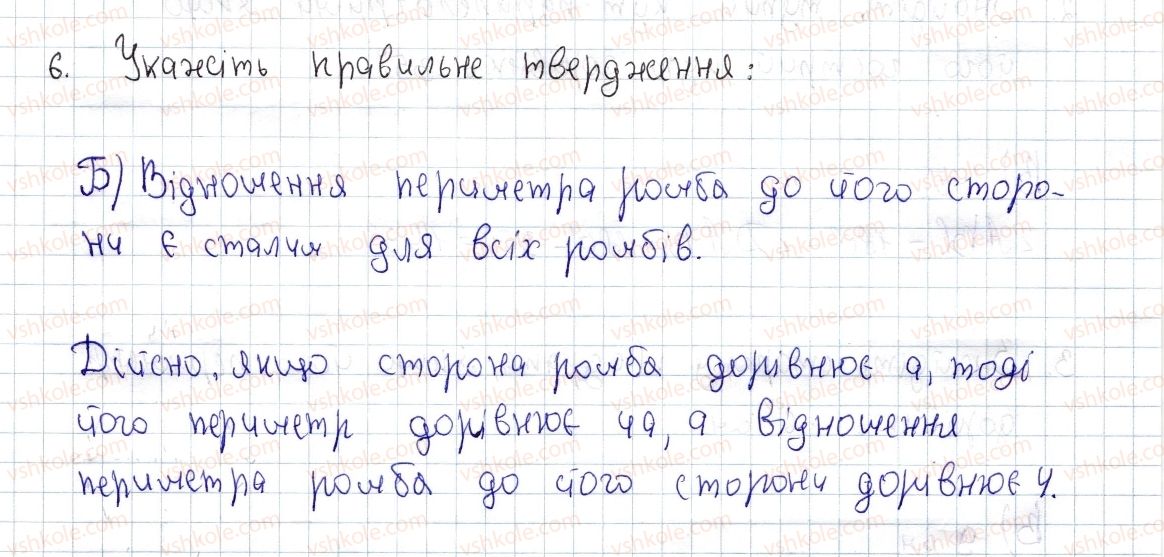 6. Укажіть правильне твердження:
Б) Відношення периметра ромба до його сторо-
ни є сталим для всіх ромбів.
Дійсно, якщо сторона ромба дорівнює a, тоді
його периметр дорівнює 4a, а відношення
периметра ромба до його сторони дорівнює 4.